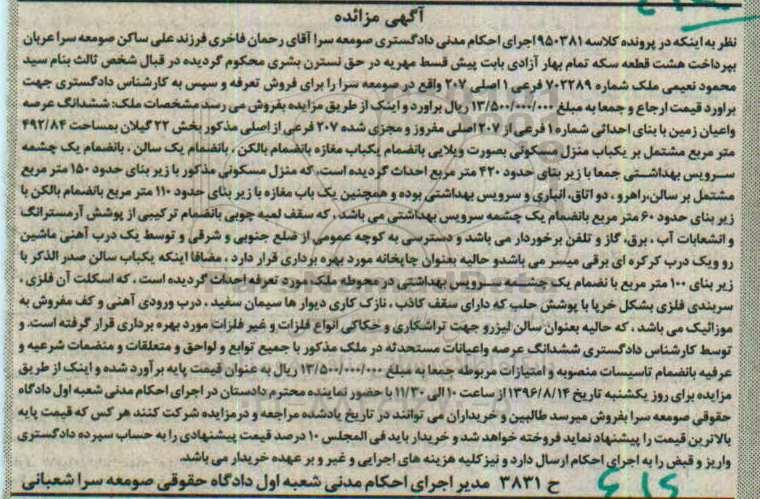 آگهی مزائده
نظر به اینکه در پرونده کلاسه ۹۵۰۳۸۱ اجرای احکام مدنی دادگستری صومعه سرا آقای رحمان فاخری فرزند علی ساکن صومعه سرا عربان
بپرداخت هشت قطعه سکه تمام بهار آزادی بابت پیش قسط مهریه در حق نسترن بشری محکوم گردیده در قبال شخص ثالث بنام سید
محمود نعیمی ملک شماره ۷۰۲۲۸۹ فرعی ۱ اصلی ۲۰۷ واقع در صومعه سرا را برای فروش تعرفه و سپس به کارشناس دادگستری جهت
براورد قیمت ارجاع و جمعا به مبلغ ۱۳/۵۰۰/۰۰۰/۰۰۰ ریال براورد و اینک از طریق مزایده بفروش می رسد مشخصات ملک: ششدانگ عرصه
واعیان زمین با بنای احداثی شماره ۱ فرعی از ۲۰۷ اصلی مفروز و مجزی شده ۲۰۷ فرعی از اصلی مذکور بخش ۲۲ گیلان بمساحت ۴۹۲/۸۴
متر مربع مشتمل بر یکباب منزل مسکونی بصورت ویلایی بانضمام یکباب مغازه بانضمام بالکن ، بانضمام یک سالن ، بانضمام یک چشمه
سرویس بهداشتی جمعا با زیر بنای حدود ۴۲۰ متر مربع احداث گردیده است، که منزل مسکونی مذکور با زیر بنای حدود ۱۵۰ متر مربع
مشتمل بر سالن،راهرو ، دو اتاق، انباری و سرویس بهداشتی بوده و همچنین یک باب مغازه با زیر بنای حدود ۱۱۰ متر مربع بانضمام بالکن با
زیر بنای حدود ۶۰ متر مربع بانضمام یک چشمه سرویس بهداشتی می باشد ، که سقف لمبه چوبی بانضمام ترکیبی از پوشش آرمسترانگ
و انشعابات آب ، برق، گاز و تلفن برخوردار می باشد و دسترسی به کوچه عمومی از ضلع جنوبی و شرقی و توسط یک درب آهنی ماشین
رو ویک درب کرکره ای برقی میسر می باشدو حالیه بعنوان چاپخانه مورد بهره برداری قرار دارد ، مضافا اینکه یکباب سالن صدر الذکر با
زیر بنای ۱۰۰ متر مربع با نضمام یک چشمه سرویس بهداشتی در محوطه ملک مورد تعرفه احداث گردیده است ، که اسکلت آن فلزی ،
سربندی فلزی بشکل خرپا با پوشش حلب که دارای سقف کاذب ، نازک کاری دیوار ها سیمان سفید ، درب ورودی آهنی و کف مفروش به
موزائیک می باشد ، که حالیه بعنوان سالن لیزرو جهت تراشکاری و حکاکی انواع فلزات و غیر فلزات مورد بهره برداری قرار گرفته است. و
توسط کارشناس دادگستری ششدانگ عرصه واعیانات مستحدثه در ملک مذکور با جمیع توابع و لواحق و متعلقات و منضمات شرعیه و
عرفیه بانضمام تاسیسات منصوبه و امتیازات مربوطه جمعا به مبلغ ۱۳/۵۰۰/۰۰۰/۰۰۰ ریال به عنوان قیمت پایه برآورد شده و اینک از طریق
مزایده برای روز یکشنبه تاریخ ۱۳۹۶/۸/۱۴ از ساعت ۱۰ الی ۱۱/۳۰ با حضور نماینده محترم دادستان در اجرای احکام مدنی شعبه اول دادگاه
حقوقی صومعه سرا بفروش میرسد طالبین و خریداران می توانند در تاریخ یادشده مراجعه و درمزایده شرکت کنند هر کس که قیمت پایه
بالاترین قیمت را پیشنهاد نماید فروخته خواهد شد و خریدار باید فی المجلس ۱۰ درصد قیمت پیشنهادی را به حساب سپرده دادگستری
واریز و قبض را به اجرای احکام ارسال دارد و نیز کلیه هزینه های اجرایی و غیر و بر عهده خریدار می باشد.
ح ۳۸۳۱ مدیر اجرای احکام مدنی شعبه اول دادگاه حقوقی صومعه سرا شعبانی